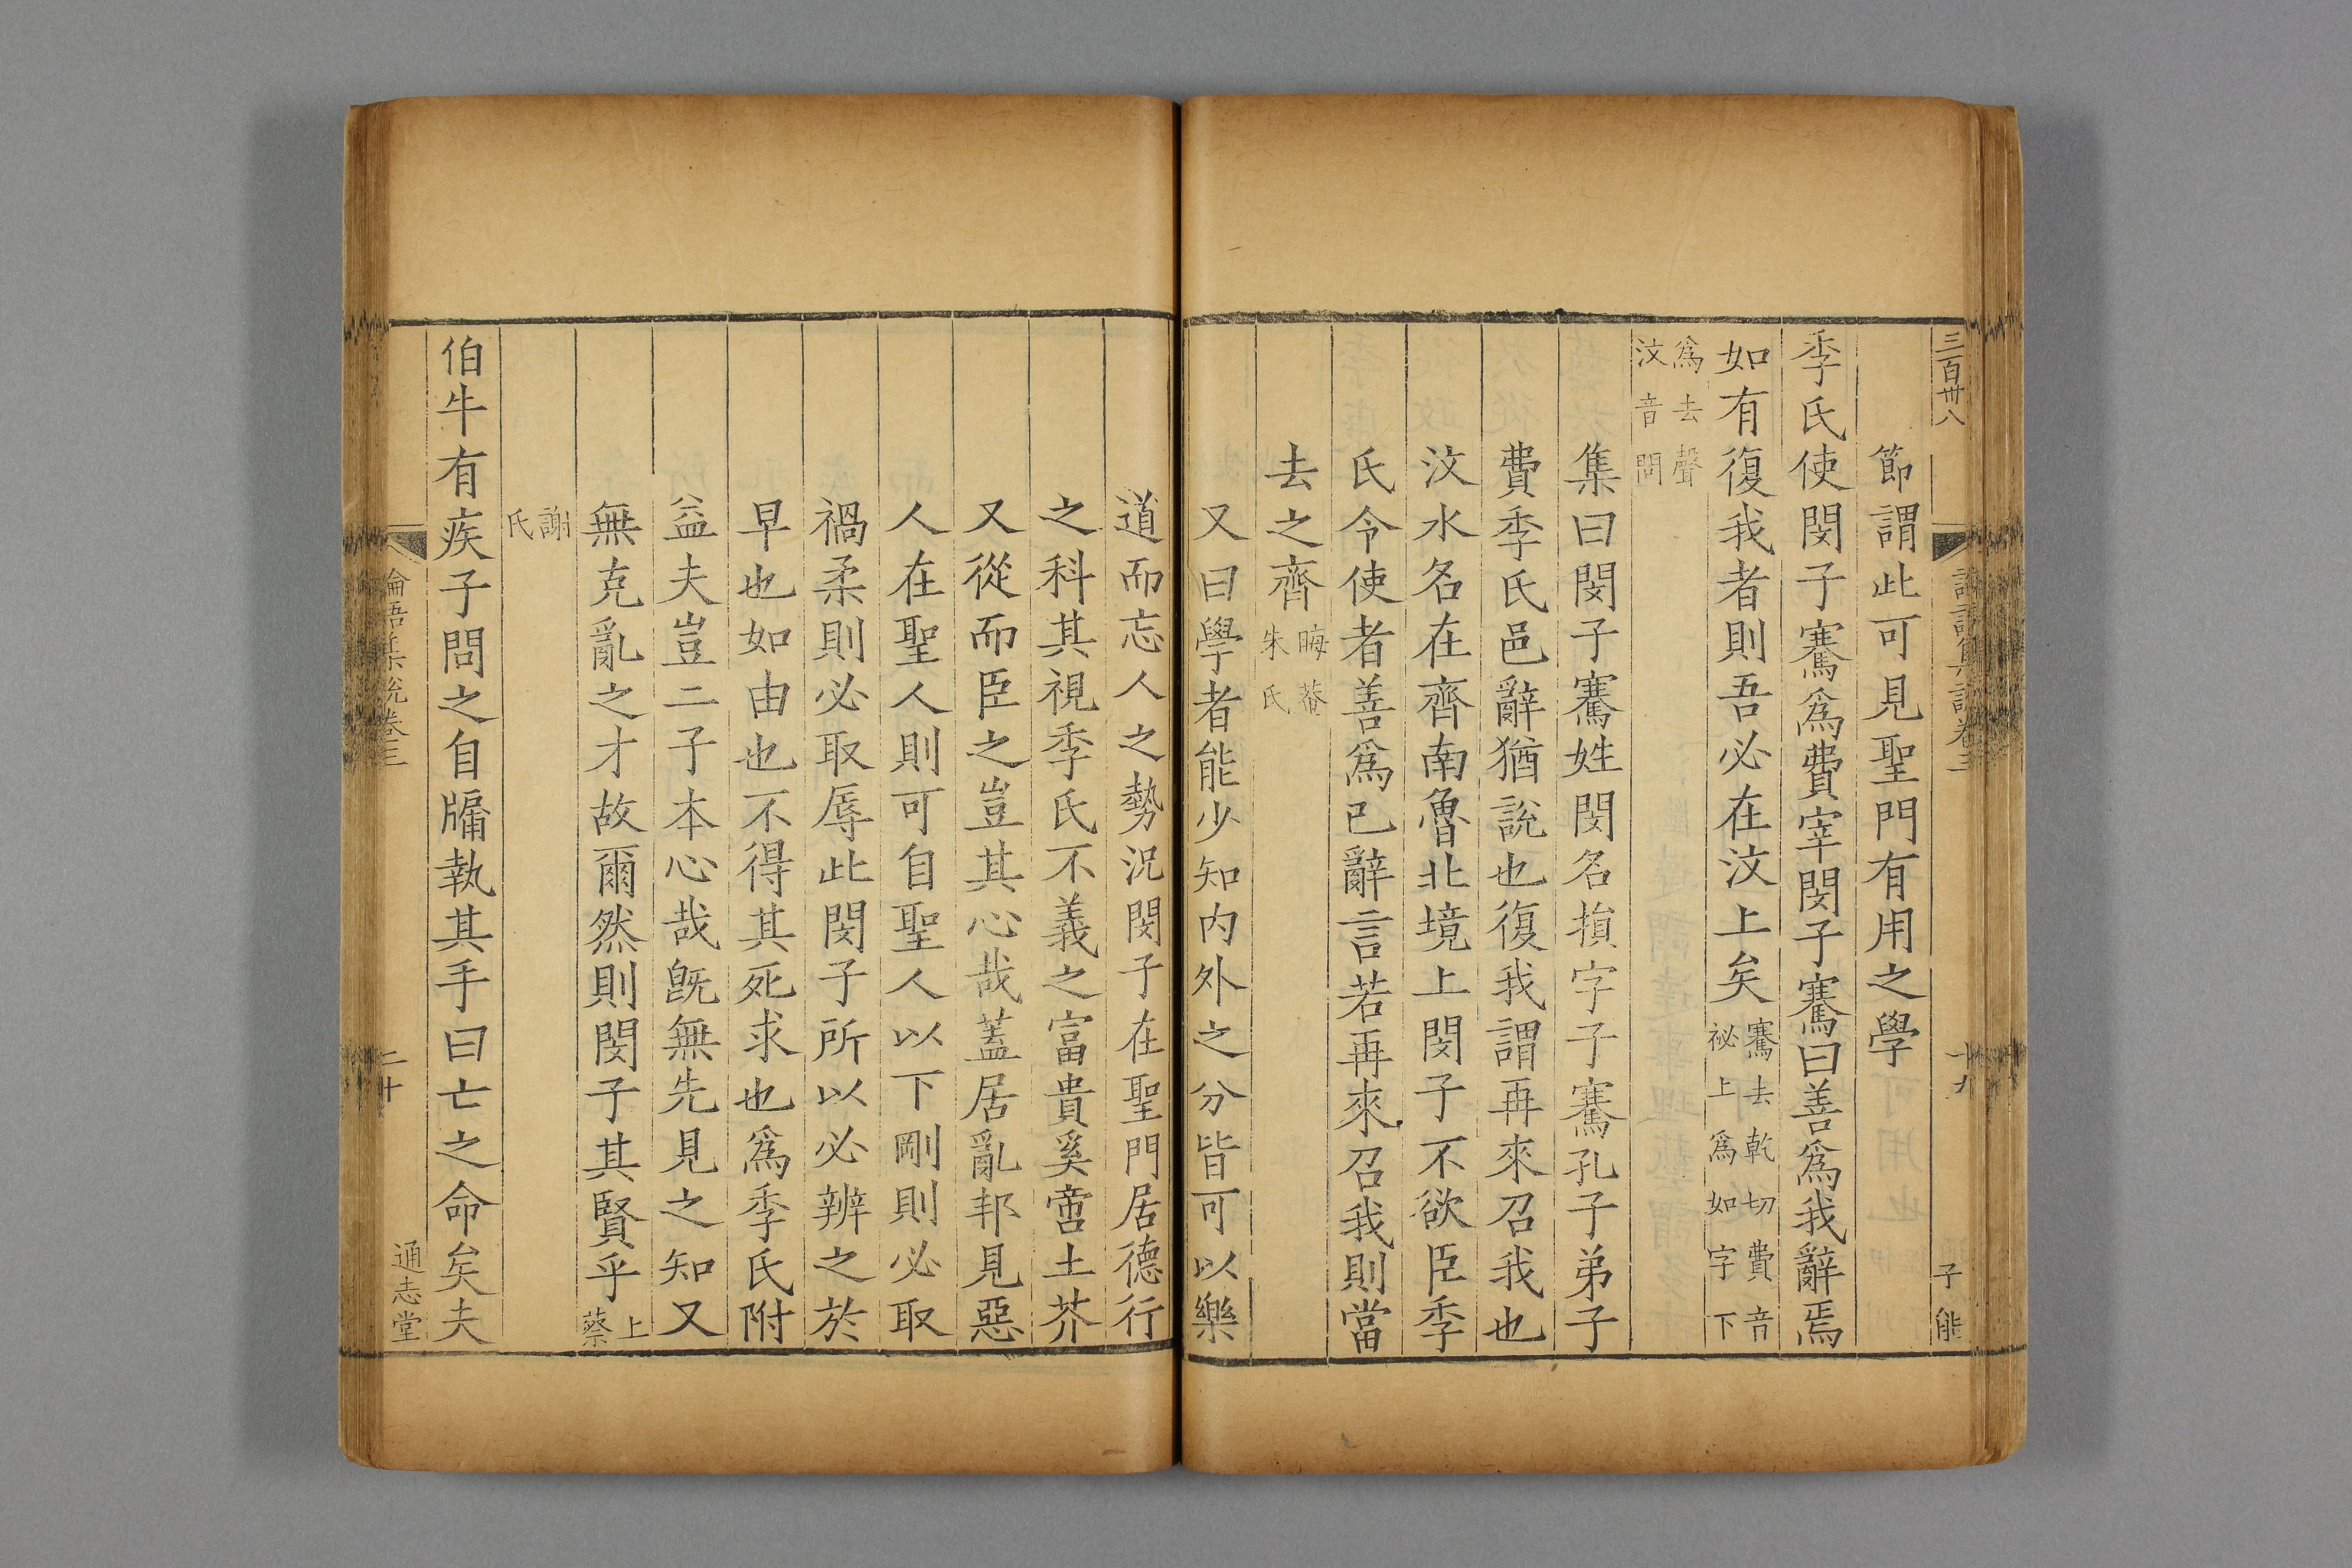 三百卅八
十九
子能
節謂此可見聖門有用之學
季氏使閔子騫爲費宰閔子騫曰善爲我辭焉
如有復我者則吾必在汶上矣騫去乾切費音祕上爲如字下
爲去聲汶音問
集曰閔子騫姓閔名損字子騫孔子弟子
費季氏邑辭猶說也復我謂再來召我也
汶水名在齊南魯北境上閔子不欲臣季
氏令使者善爲己辭言若再來召我則當
去之齊晦菴朱氏
又曰學者能少知内外之分皆可以樂
道而忘人之勢況閔子在聖門居德行
之科其視季氏不義之富貴奚啻土芥
又從而臣之豈其心哉蓋居亂邦見惡
人在聖人則可自聖人以下剛則必取
禍柔則必取辱此閔子所以必辨之於
早也如由也不得其死求也爲季氏附
益夫豈二子本心哉旣無先見之知又
無克亂之才故爾然則閔子其賢乎上蔡
謝氏
伯牛有疾子問之自牖執其手曰亡之命矣夫
論語集說卷三
二十
通志堂